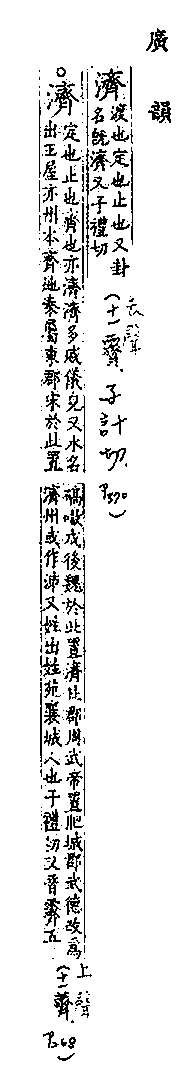 廣韻
濟
渡也定也止也又卦
名既濟又子禮切
去聲
(十二霽.子計切.P370)
濟
定也止也齊也亦濟濟多威儀皃又水名
出王屋亦州本齊地秦屬東郡宋於此置
碻磝戍後魏於此置濟北郡周武帝置肥城郡武德改爲
濟州或作泲又姓出姓苑襄城人也子禮切又音霽五
上聲
(十一薺.P268)